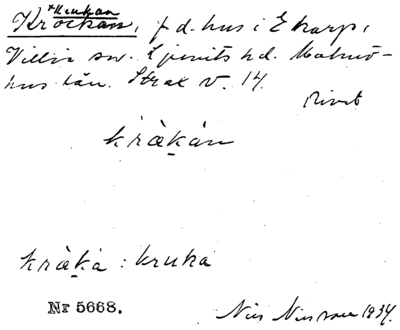 *Krukan
Krockan, f.d. hus i Ekarp,
Villie sn. Ljunits hd. Malmö-
hus län. Strax v. 14.
Rivet
kràkan
kràka : kruka
Nr 5668.
Nils Nilsson 1934.